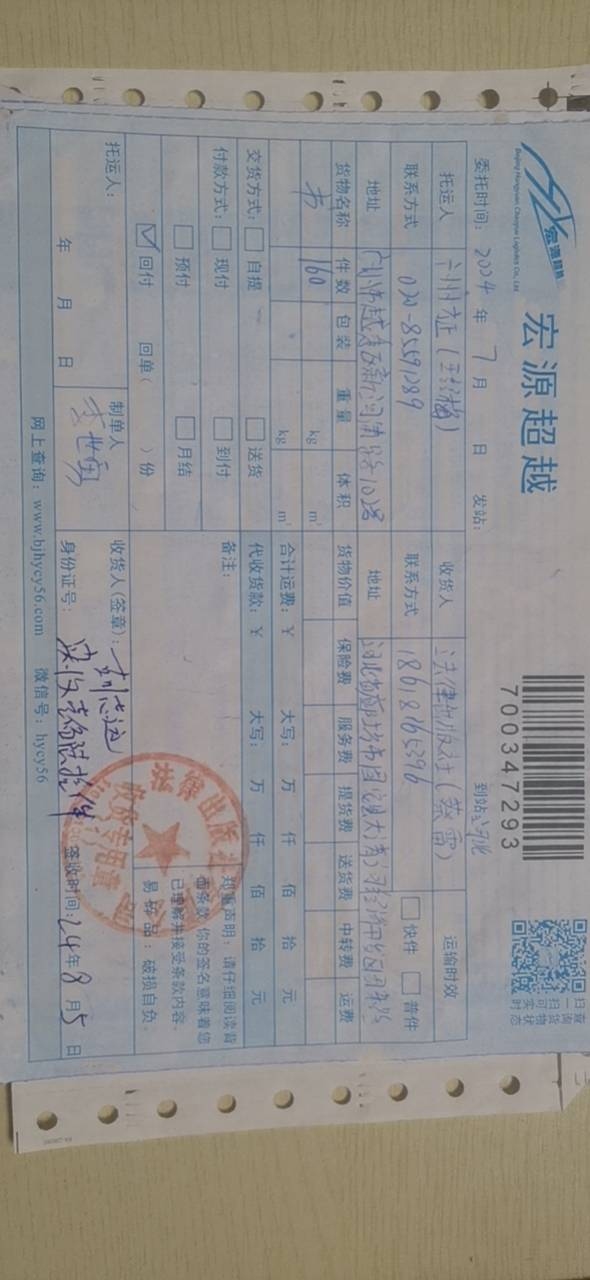 宏源超越
Beijing Hongyuan Chaoyue Logistics Co., Ltd.
宏源超越
700347293
扫一扫可实时
查询货物状态
委托时间: 2024 年 7 月 日 发站: 到站: 河北
托运人 广州方征 收货人 法律出版社(蔡雷) 运输时效
联系方式 020-85591289 联系方式 18618165396 快件 普件
地址 地址
货物名称 件数 包装 重量 体积 货物价值 保险费 服务费 提货费 送货费 中转费 运费
书 160 kg m³
kg m³ 合计运费: ¥ 大写: 万 仟 佰 拾 元
交货方式: 自提 送货 代收货款: ¥ 大写: 万 仟 佰 拾 元
付款方式: 现付 到付 备注:
预付 月结
回付 回单( )份
郑重声明: 请仔细阅读背
面条款,你的签名意味着您
已理解并接受条款内容。
易碎品: 破损自负。
法律出版社
收发专用章
托运人: 制单人 收货人(签章):
年 月 日 李世勇 身份证号: 签收时间: 24 年 8 月 5 日
网上查询: www.bjhycy56.com 微信号: hycy56